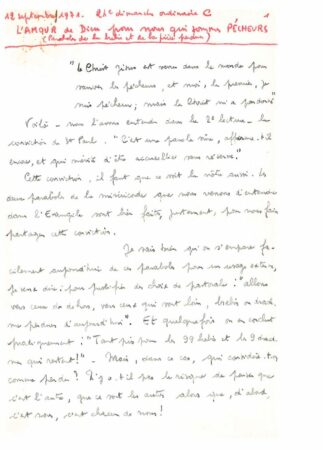 12 septembre 1971. 24e dimanche ordinaire C 1
L'AMOUR de Dieu pour nous qui sommes PÉCHEURS
(Parabole de la brebis et de la pièce perdue)
"le Christ Jésus est venu dans le monde pour
sauver les pécheurs, et moi, le premier, je
suis pécheur; mais le Christ m'a pardonné"
Voilà - nous l'avons entendu dans la 2e lecture - la
conviction de St Paul. "C'est une parole sûre, affirme-t-il
encore, et qui mérite d'être accueillie sans réserve."
Cette conviction, il faut que ce soit la nôtre aussi. Les
deux paraboles de la miséricorde que nous venons d'entendre
dans l'Evangile sont très faites, justement, pour nous faire
partager cette conviction.
Je sais bien qu'on s'empare fa-
cilement aujourd'hui de ces paraboles pour un usage externe,
je veux dire: pour justifier des choix de pastorale: "allons
vers ceux du dehors, vers ceux qui sont loin, brebis ou drachme
perdues d'aujourd'hui". Et quelquefois on en conclut
pratiquement: "Tant pis pour les 99 brebis et les 9 drach-
mes qui restent!" - Mais, dans ce cas, qui considère-t-on
comme perdu? N'y a-t-il pas le risque de penser que
c'est l'autre, que ce sont les autres, alors que, d'abord,
c'est nous, c'est chacun de nous!